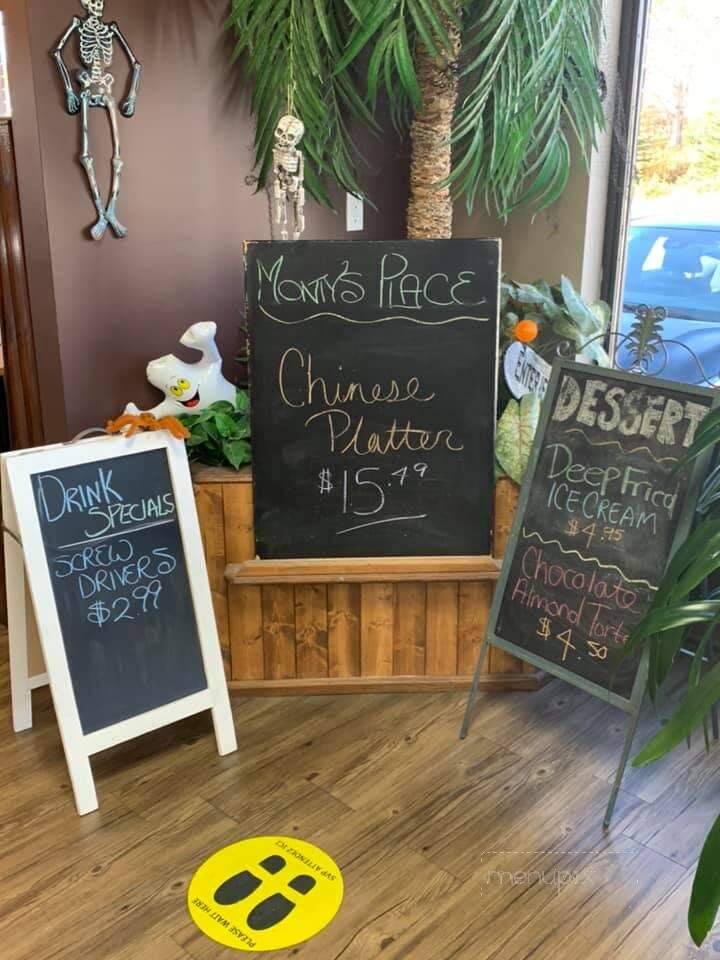 Monty's Place
Chinese
Platter
$15.49
Drink
Specials
Screw
Drivers
$2.99
DESSERT
Deep Fried
ICE CREAM
$4.95
Chocolate
Almond Torte
$4.50
ENTER
SVP ATTENDEZ ICI
PLEASE WAIT HERE
menupix